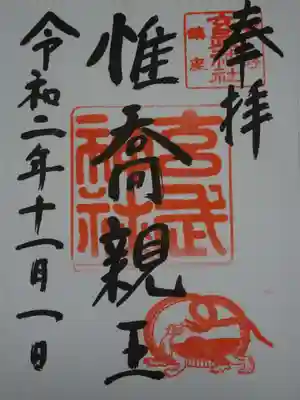 奉拝
惟喬親王
玄武
神社
令和二年十一月一日